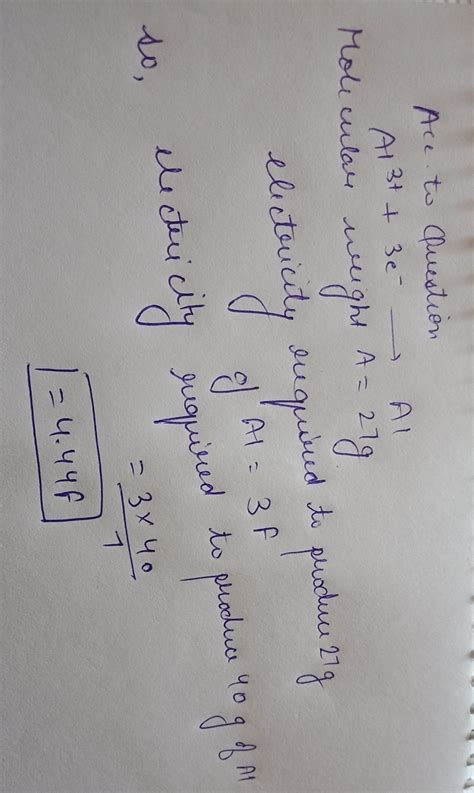 Acc. to Question
Al3+ + 3e- → Al
Molecular weight A = 27g.
electricity required to produce 27g
of Al = 3F
so, electricity required to produce 40g of Al
= 3 x 40
1
= 4.44F